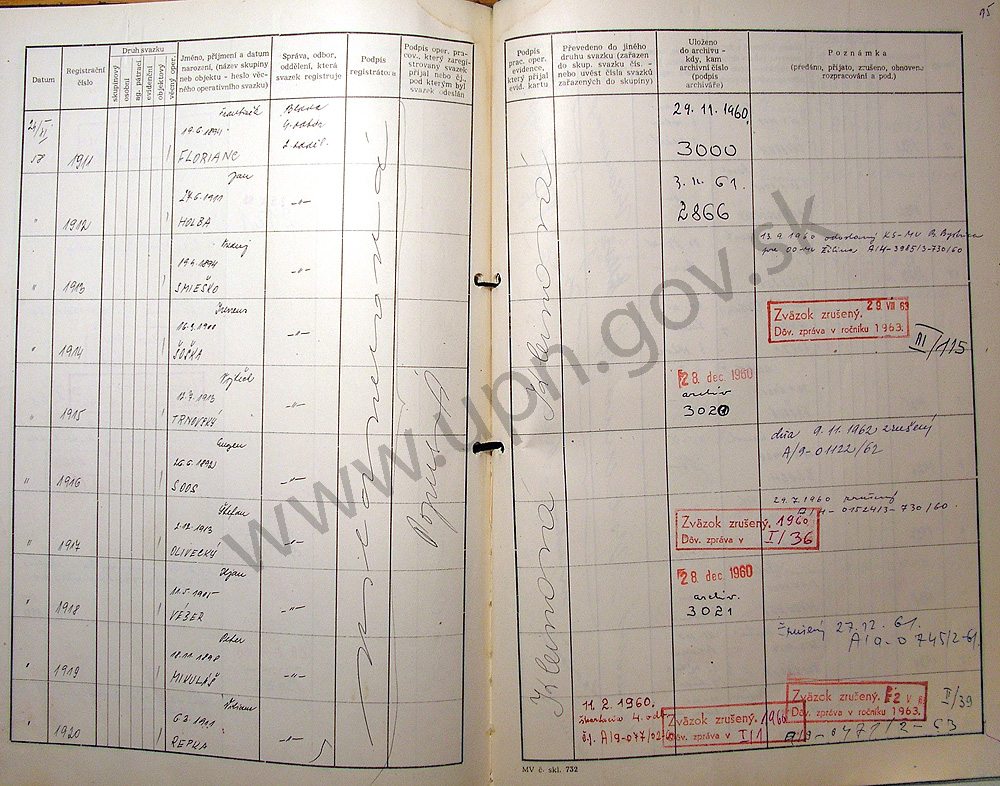 15
Datum
Registrační číslo
Druh svazku
skupinový
osobní
ag. pátrací
evidenční
objektový
věcný oper.
Jméno, příjmení a datum
narození, (název skupiny
neb objektu - heslo věc-
ného operativního svazku)
Správa, odbor,
oddělení, která
svazek registruje
Podpis
registrátora
Podpis oper. pra-
cov., který zaregi-
stroval svazek
přijal nebo čj.,
pod kterým byl
svazek odeslán
Podpis
prac. oper.
evidence,
který přijal
evid. kartu
Převedeno do jiného
druhu svazku (zařazen
do skup. svazku čís. -
nebo uvést čísla svazků
zařazených do skupiny)
Uloženo
do archivu -
kdy, kam
archivní číslo
(podpis
archiváře)
Poznámka
(předáno, přijato, zrušeno, obnoveno
rozpracování a pod.)
1911
19.6.1894
FLORIANC
29.11.1960
3000
" 1912
Jan
27.6.1911
HOLBA
-"-
3.11.61.
2866
" 1913
19.4.1894
SMIEŠKO
-"-
13.9.1960 odoslaný KS-MV B. Bystrica
pre OO-MV Žilina A/4-3985/3-730/60
" 1914
16.9.1900
ŠOŠKA
-"-
Zväzok zrušený. 29. VIII 63
Dôv. zpráva v ročníku 1963.
III/115
" 1915
Vojtech
12.7.1913
TRNOVSKÝ
-"-
28. dec. 1960
archiv
3020
" 1916
Eugen
26.6.1892
SOOS
-"-
dňa 9.11.1962 zrušený
A/9-01122/62
" 1917
Štefan
2.12.1913
OLIVECKÝ
-"-
Zväzok zrušený. 1960
Dôv. zpráva v I/36
29.7.1960 zrušený
A/4-01524/3-730/60.
" 1918
Dejan
11.5.1905
VÉBER
-"-
28. dec. 1960
archiv.
3021
" 1919
Peter
18.11.1898
MIKULÁŠ
-"-
Zrušený 27.12.61.
A/9-0745/2-61.
" 1920
6.2.1911
REPKA
-"-
11.2.1960.
4. odd.
čj. A/9-077/02-60
Zväzok zrušený. 1960
Dôv. zpráva v I/1
Zväzok zrušený.
Dôv. zpráva v ročníku 1963.
II/39
A/9-0471/2-63
Klimová Klimová
MV č. skl. 732
www.upn.gov.sk